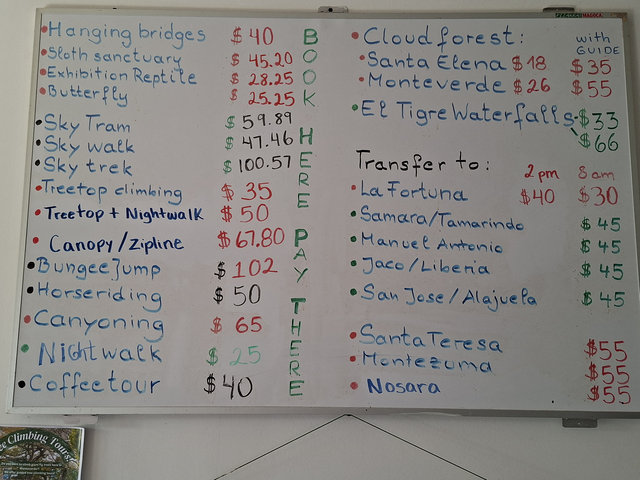 Hanging bridges $ 40
Sloth sanctuary $ 45.20
Exhibition Reptile $ 28.25
Butterfly $ 25.25
Sky Tram $ 59.89
Sky walk $ 47.46
Sky trek $ 100.57
Treetop climbing $ 35
Treetop + Nightwalk $ 50
Canopy / Zipline $ 67.80
Bungee Jump $ 102
Horseriding $ 50
Canyoning $ 65
Nightwalk $ 25
Coffee tour $ 40
BOOK HERE PAY THERE
Cloud forest: with GUIDE
Santa Elena $ 18 $ 35
Monteverde $ 26 $ 55
El Tigre Waterfalls $ 33
$ 66
Transfer to: 2 pm 8 am
La Fortuna $ 40 $ 30
Samara/Tamarindo $ 45
Manuel Antonio $ 45
Jaco / Liberia $ 45
San Jose / Alajuela $ 45
Santa Teresa $55
Montezuma $55
Nosara $55
Climbing Tours